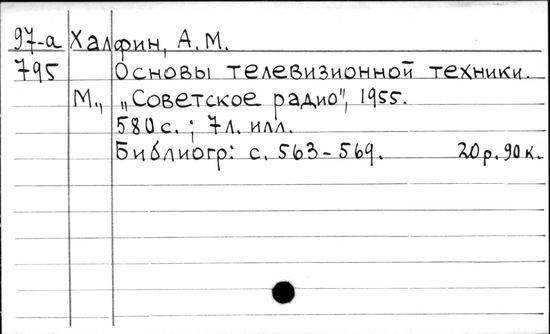 97-а Халфин, А.М.
795 Основы телевизионной техники.
М., „Советское радио", 1955.
580 с. ; 7 л. илл.
Библиогр: с. 563-569. 20 р. 90 к.